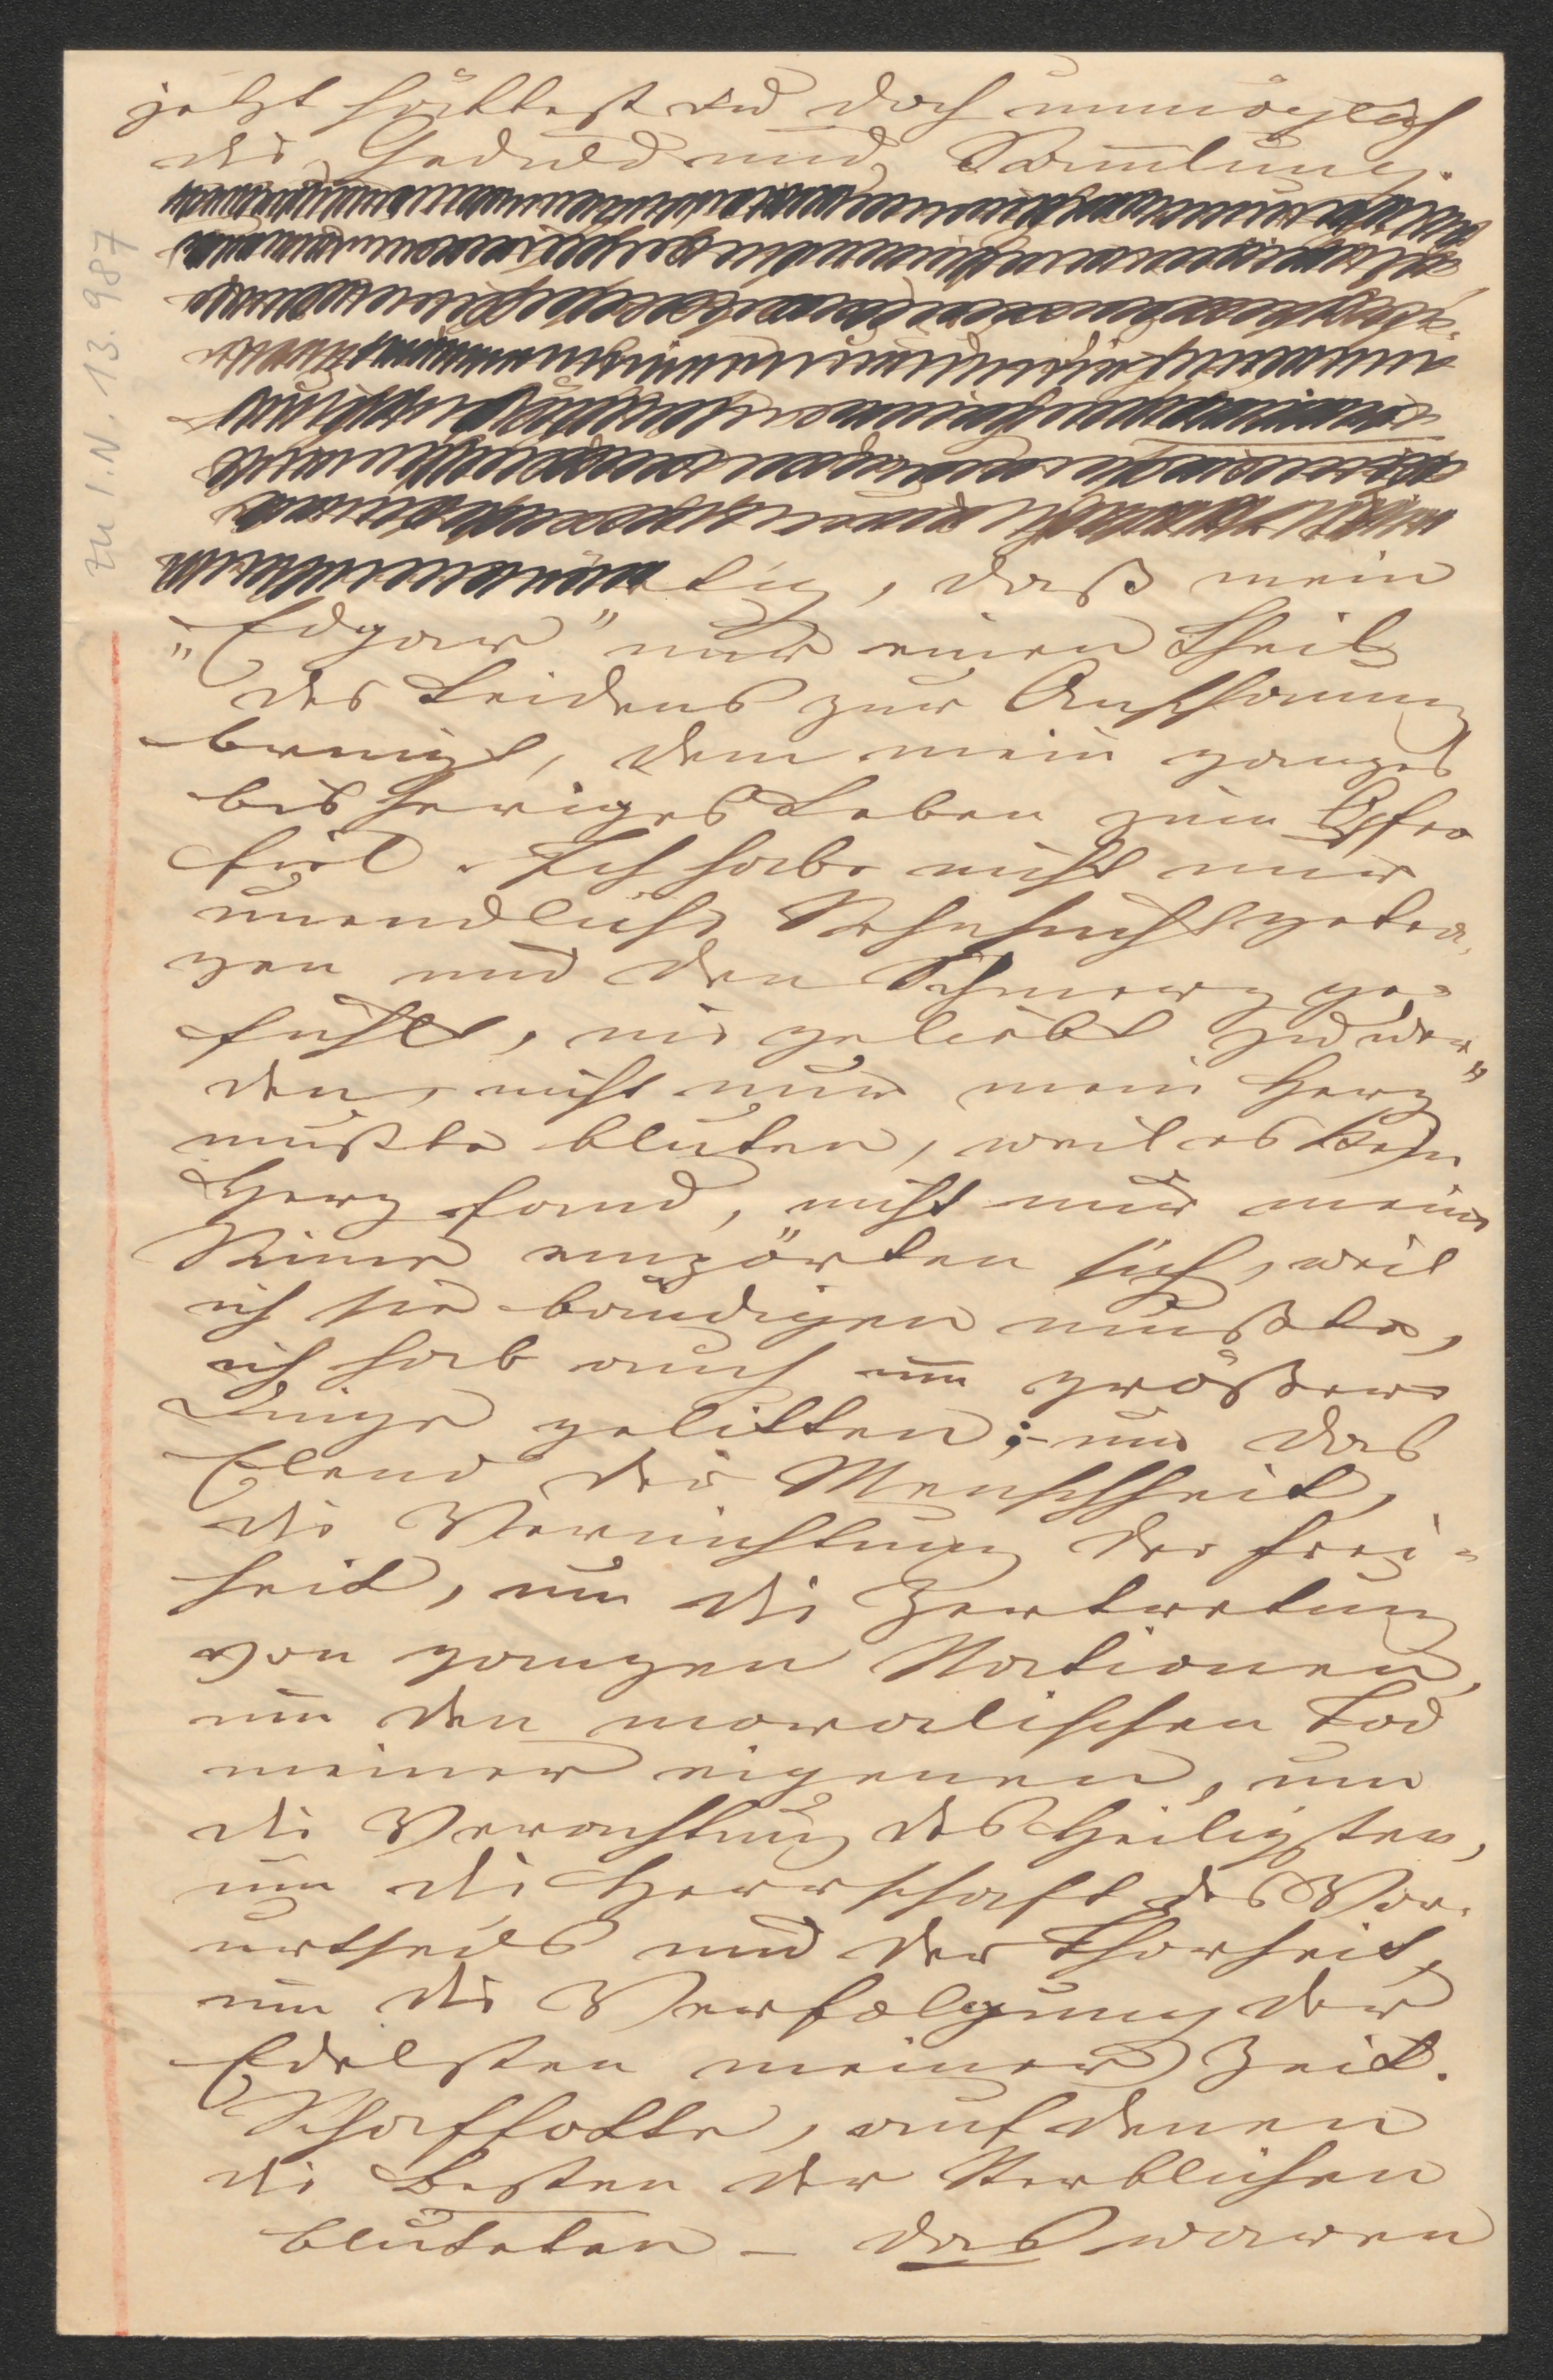 jetzt hättest du doch unmöglich
die Geduld und Sammlung.
zu I.N. 13.987
, daß mein
„Edgar" nur einen Theil
des Leidens zur Anschauung
bringt, dem mein ganzes
bisheriges Leben zum Opfer
fiel. Ich habe nicht nur
unendliche Sehnsucht getra-
gen und den Schmerz ge-
fühlt, nie geliebt zu wer-
den, nicht nur mein Herz
mußte bluten, weil es kein
Herz fand, nicht nur meine
Sinne empörten sich, weil
ich sie bändigen mußte,
ich hab auch um größere
Dinge gelitten; – um das
Elend der Menschheit,
die Vernichtung der Frei-
heit, um die Zertretung
von ganzen Nationen,
um den moralischen Tod
meiner eigenen, um
die Verachtung des Heiligsten,
um die Herrschaft des Vor-
urtheils und der Thorheit,
um die Verfolgung der
Edelsten meiner Zeit.
Schaffotte, auf denen
die Besten der Sterblichen
bluteten – das waren